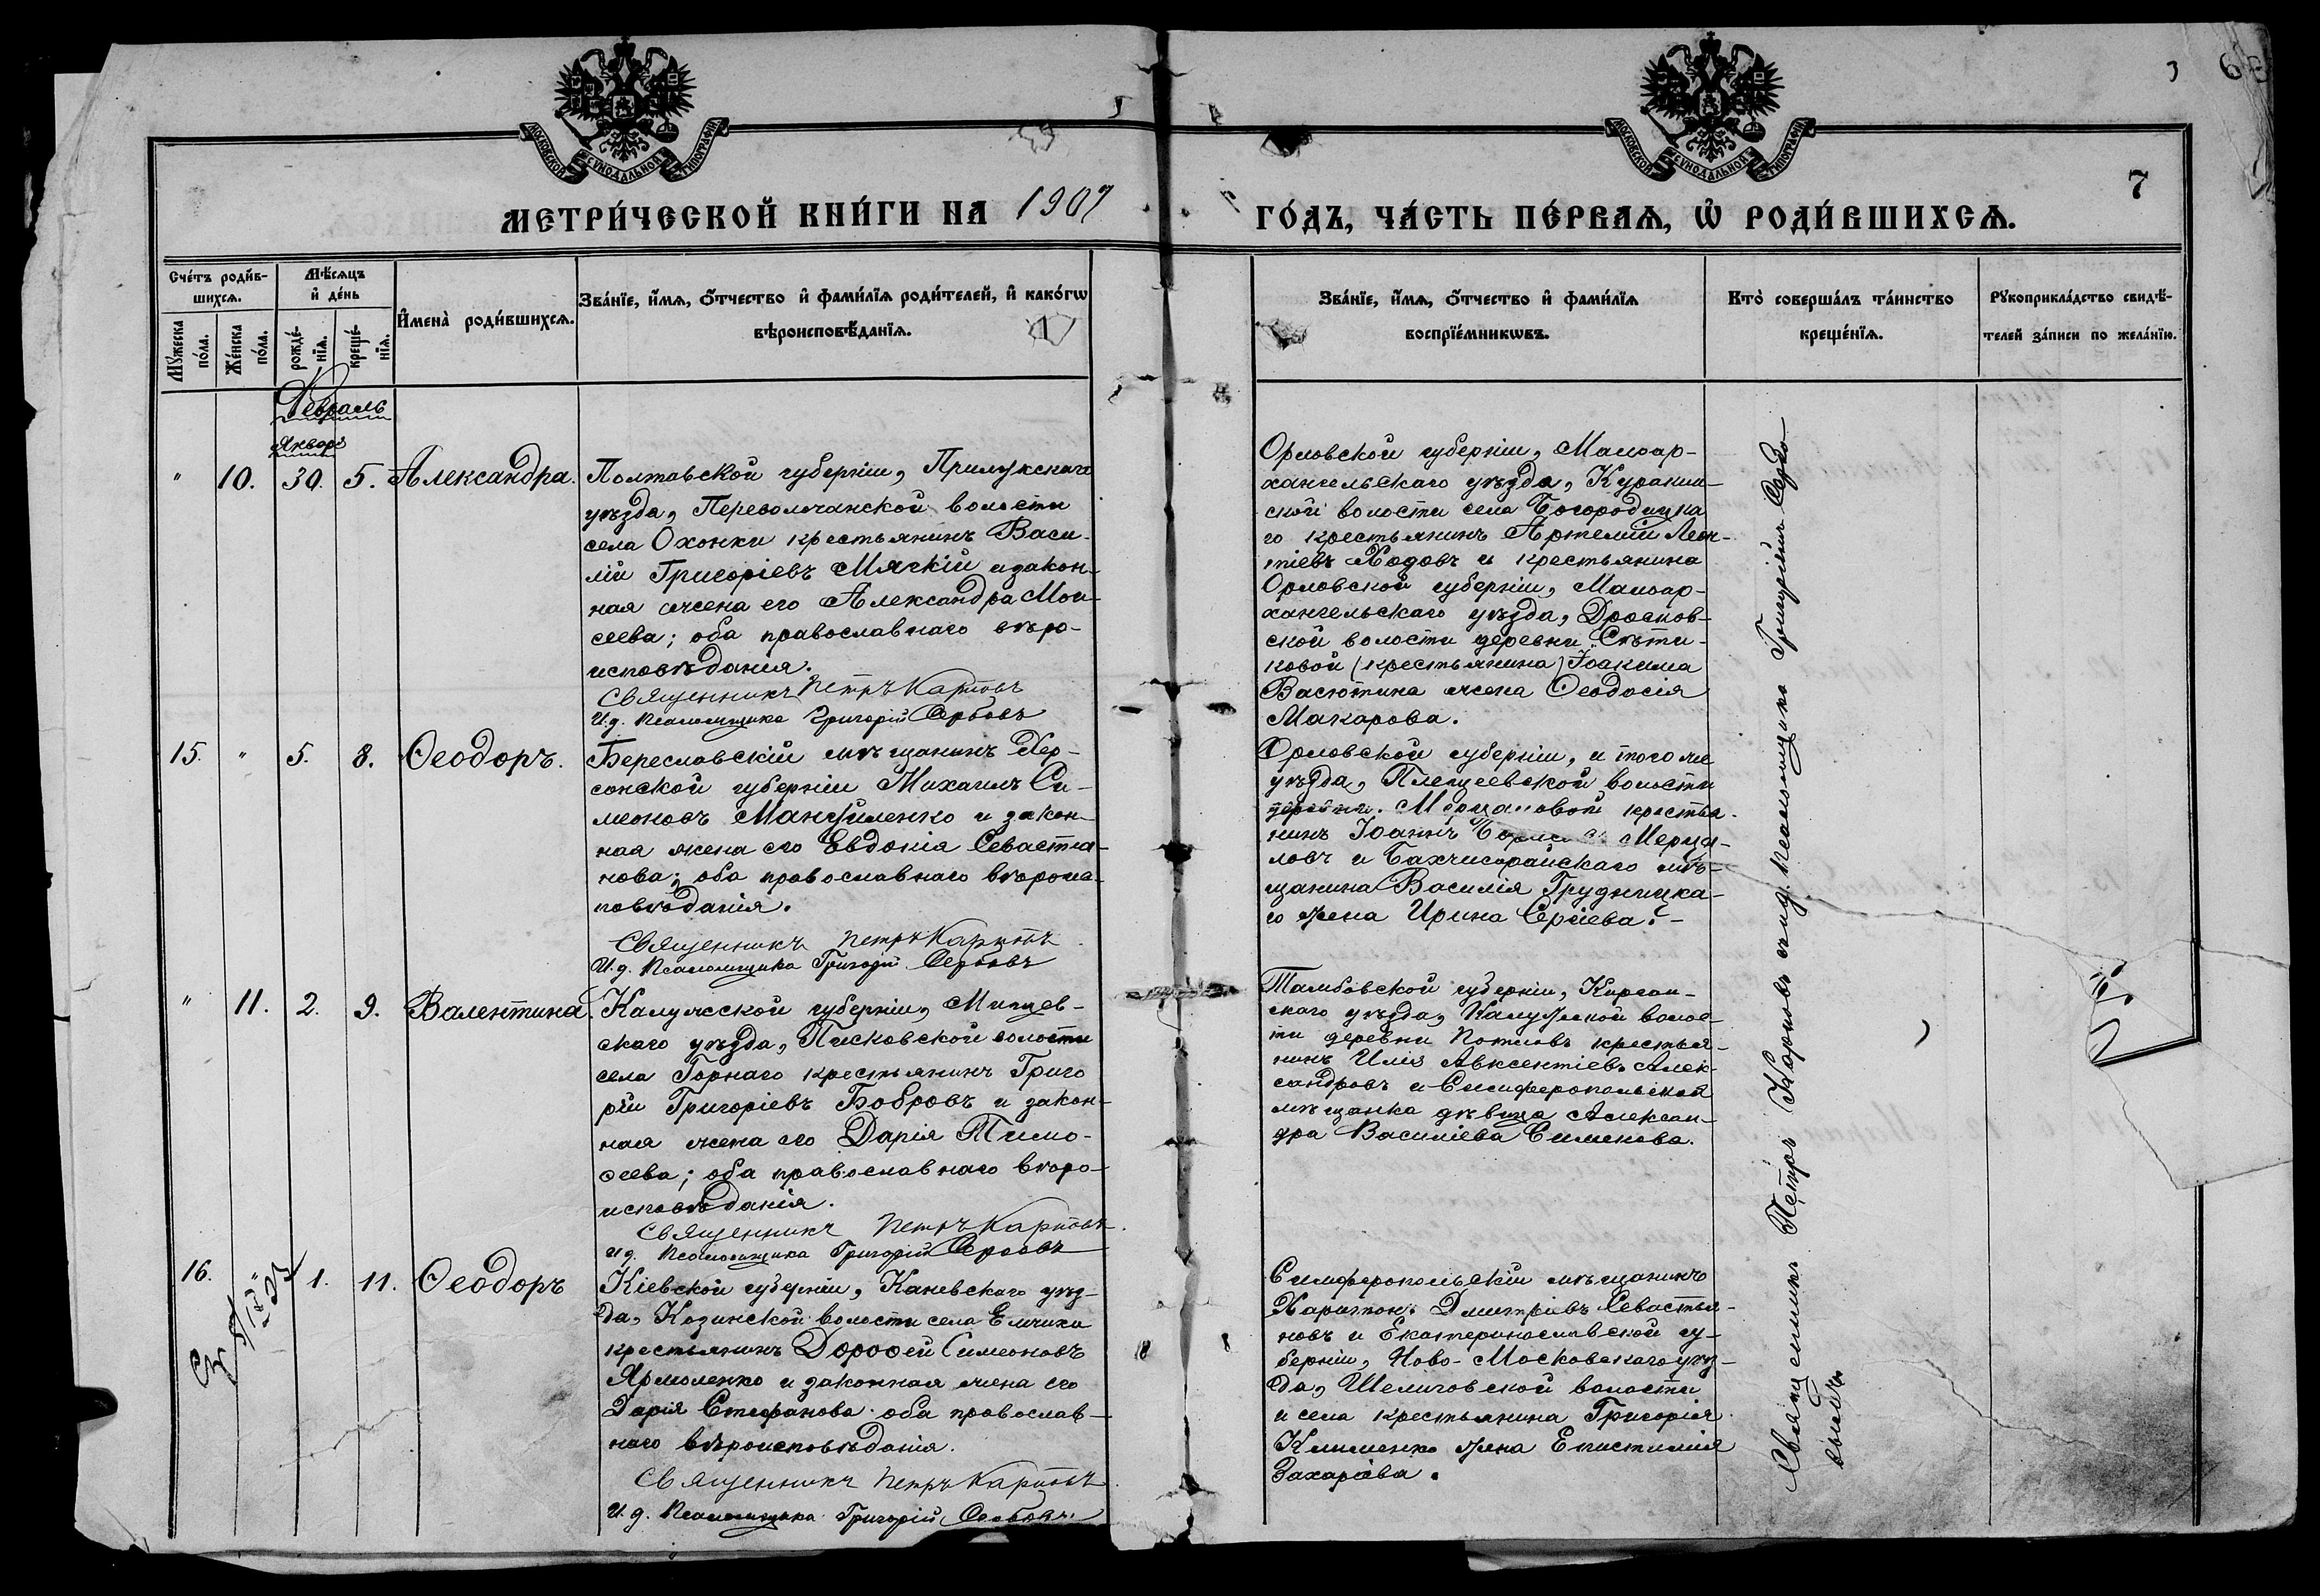 МОСКОВСКОЙ СѴНОДАЛЬНОЙ ТИПОГРАФІИ
МОСКОВСКОЙ СѴНОДАЛЬНОЙ ТИПОГРАФІИ
3
6
7
МЕТРИ́ЧЕСКОЙ КНИ́ГИ НА 1907
ГО́ДЪ, ЧА́СТЬ ПЕ́РВАѦ, Ѽ РОДИ́ВШИХСѦ.
Сче́тъ роди́в-
шихсѧ.
Мꙋ́жеска по́ла.
Же́нска по́ла.
Мѣ́сѧцъ
и҆ де́нь
рожде́-
нїѧ.
креще́-
нїѧ.
И҆мена̀ роди́вшихсѧ.
Зва́нїе, и҆́мѧ, ѻ҆́тчество и҆ фами́лїѧ роди́телей, и҆ како́гѡ
вѣроисповѣ́данїѧ.
1
Зва́нїе, и҆́мѧ, ѻ҆́тчество и҆ фами́лїѧ
воспрїе́мникѡвъ.
Кто̀ соверша́лъ та́инство
креще́нїѧ.
Рꙋкоприкла́дство свидѣ́-
телей за́писи по жела́нїю.
Февраль
Январь
" 10. 30. 5. Александра.
Полтавской губерніи, Прилукскаго
уѣзда, Переволочанской волости
села Охонки крестьянинъ Васи-
лій Григоріевъ Мягкій и закон-
ная жена его Александра Мои-
сеева; оба православнаго вѣро-
исповѣданія.
Священникъ Петръ Карповъ
И. д. Псаломщика Григорій Сербовъ
Орловской губерніи, Малоар-
хангельскаго уѣзда, Куракин-
ской волости села Богородицка
го крестьянинъ Артемій Леон-
тіевъ Ходовъ и крестьянина
Орловской губерніи, Малоар-
хангельскаго уѣзда, Дросков-
ской волости деревни Сѣти-
ковой (крестьянина) Іоакима
Васютина жена Ѳеодосія
Макарова.
15. " 5. 8. Ѳеодоръ.
Береславскій мѣщанинъ Хер-
сонской губерніи Михаилъ Си-
меоновъ Мануйленко и закон-
ная жена его Евдокія Севастіа-
нова; оба православнаго вѣроис-
повѣданія.
Священникъ Петръ Карповъ
И. д. Псаломщика Григорій Сербовъ
Орловской губерніи, и того же
уѣзда, Плещеевской волости
деревни Мерцаловой крестья-
нинъ Іоаннъ Мерца-
ловъ и Бахчисарайскаго мѣ-
щанина Василія Грудницка-
го жена Ирина Сергіева. -
" 11. 2. 9. Валентина.
Калужской губерніи, Мищев-
скаго уѣзда, Писковской волости
села Горнаго крестьянинъ Григо
рій Григоріевъ Бобровъ и закон-
ная жена его Дарія Тимо-
ѳеева; оба православнаго вѣро-
исповѣданія.
Священникъ Петръ Карповъ.
И д. Псаломщика Григорій Сербовъ
Тамбовской губерніи, Кирсан-
скаго уѣзда, волос-
ти деревни крестья-
нинъ Илія Авксентіевъ Алек-
сандровъ и Симферопольская
мѣщанка дѣвица Алексан-
дра Василіева Сименова.
16. " 1. 11. Ѳеодоръ
Кіевской губерніи, Каневскаго уѣз-
да, Козинской волости села Емчихи
крестьянинъ Дороѳей Симеоновъ
Ярмоленко и законная жена его
Дарія Стефанова оба православ-
наго вѣроисповѣданія.
Священникъ Петръ Карповъ
И. д. Псаломщика Григорій Сербовъ.
Симферопольскій мѣщанинъ
Харитонъ Дмитріевъ Севастья-
новъ и Екатеринославской гу-
берніи, Ново-Московскаго уѣз-
да, волости
и села крестьянина Григорія
Клименко жена Епистимія
Захаріева.
Священникъ Петръ Карповъ съ и. д. псаломщика Григоріемъ Сербо-
вымъ